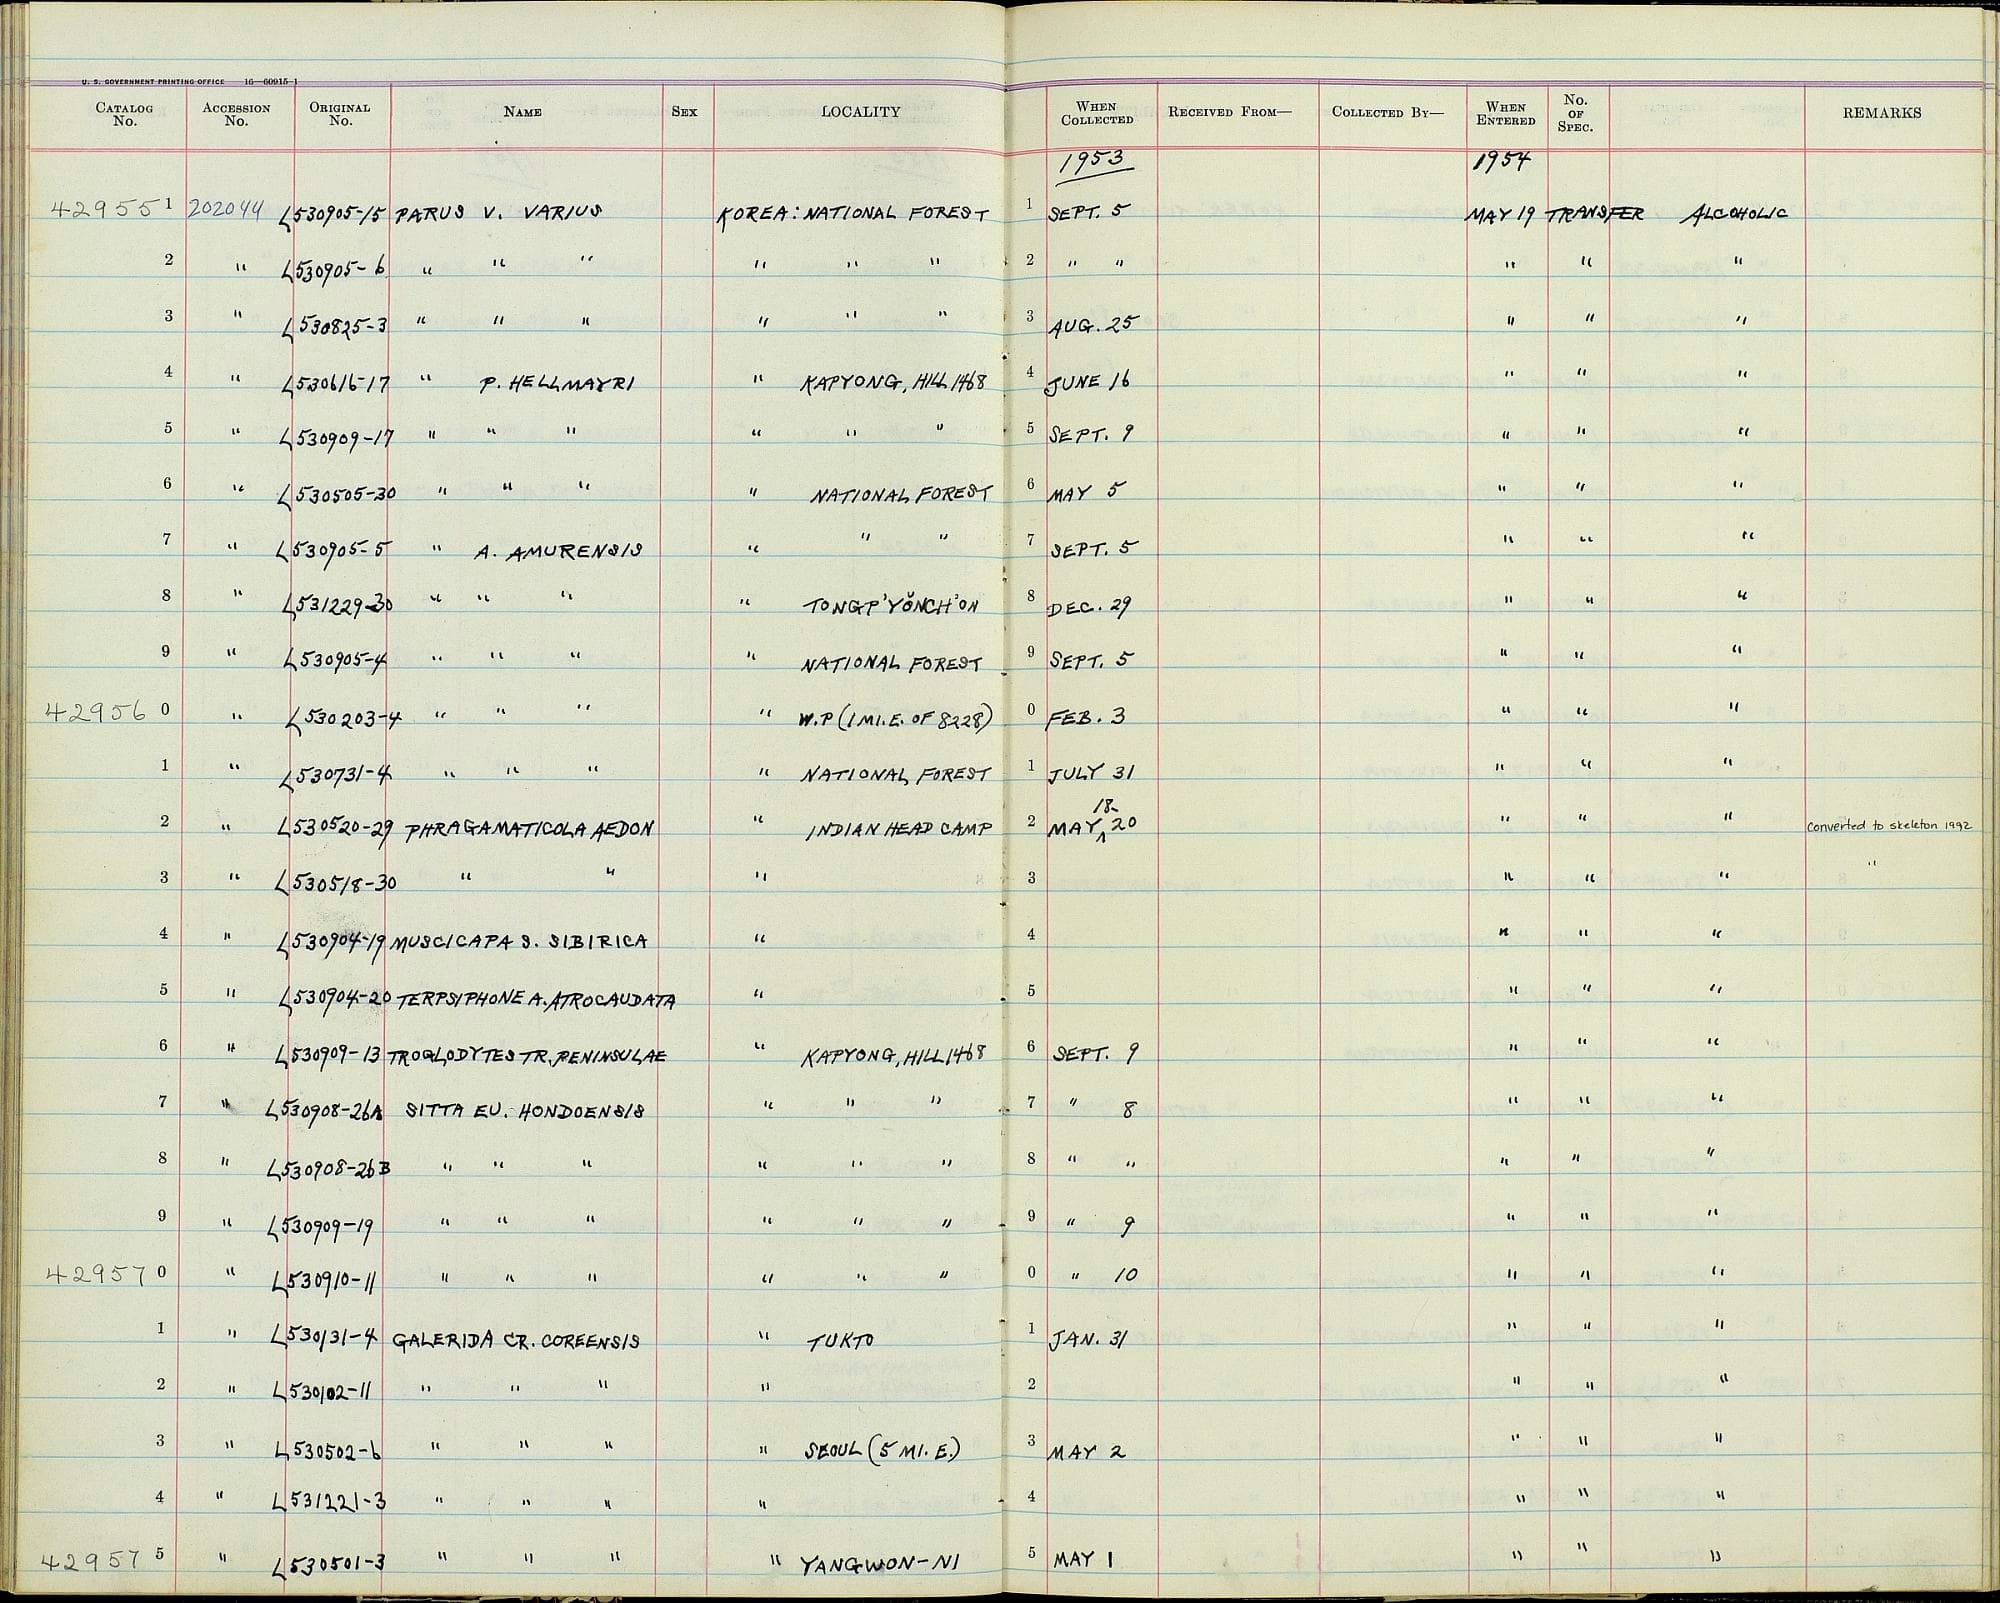 U. S. GOVERNMENT PRINTING OFFICE 16—60915-1
CATALOG No. ACCESSION No. ORIGINAL No. NAME SEX LOCALITY WHEN COLLECTED RECEIVED FROM— COLLECTED BY— WHEN ENTERED No. OF SPEC. REMARKS
1953 1954
42955 1 202044 L530905-15 PARUS V. VARIUS KOREA: NATIONAL FOREST 1 SEPT. 5 MAY 19 TRANSFER ALCOHOLIC
2 " L530905-6 " " " " " " 2 " " " " "
3 " L530825-3 " " " " " " 3 AUG. 25 " " "
4 " L530616-17 " P. HELLMAYRI " KAPYONG, HILL 1468 4 JUNE 16 " " "
5 " L530909-17 " " " " " " 5 SEPT. 9 " " "
6 " L530505-30 " " " " NATIONAL FOREST 6 MAY 5 " " "
7 " L530905-5 " A. AMURENSIS " " " 7 SEPT. 5 " " "
8 " L531229-30 " " " " TONGP'YŎNCH'ON 8 DEC. 29 " " "
9 " L530905-4 " " " " NATIONAL FOREST 9 SEPT. 5 " " "
42956 0 " L530203-4 " " " " W.P (1 MI. E. OF 8228) 0 FEB. 3 " " "
1 " L530731-4 " " " " NATIONAL FOREST 1 JULY 31 " " "
2 " L530520-29 PHRAGAMATICOLA AEDON " INDIAN HEAD CAMP 2 MAY 18-20 " " " Converted to skeleton 1992
3 " L530518-30 " " " 3 " " " "
4 " L530904-19 MUSCICAPA S. SIBIRICA " 4 " " "
5 " L530904-20 TERPSIPHONE A. ATROCAUDATA " 5 " " "
6 " L530909-13 TROGLODYTES TR. PENINSULAE " KAPYONG, HILL 1468 6 SEPT. 9 " " "
7 " L530908-26A SITTA EU. HONDOENSIS " " " 7 " 8 " " "
8 " L530908-26B " " " " " " 8 " " " " "
9 " L530909-19 " " " " " " 9 " 9 " " "
42957 0 " L530910-11 " " " " " " 0 " 10 " " "
1 " L530131-4 GALERIDA CR. COREENSIS " TUKTO 1 JAN. 31 " " "
2 " L530102-11 " " " " 2 " " "
3 " L530502-6 " " " " SEOUL (5 MI. E.) 3 MAY 2 " " "
4 " L531221-3 " " " " 4 " " "
42957 5 " L530501-3 " " " " YANGWON-NI 5 MAY 1 " " "